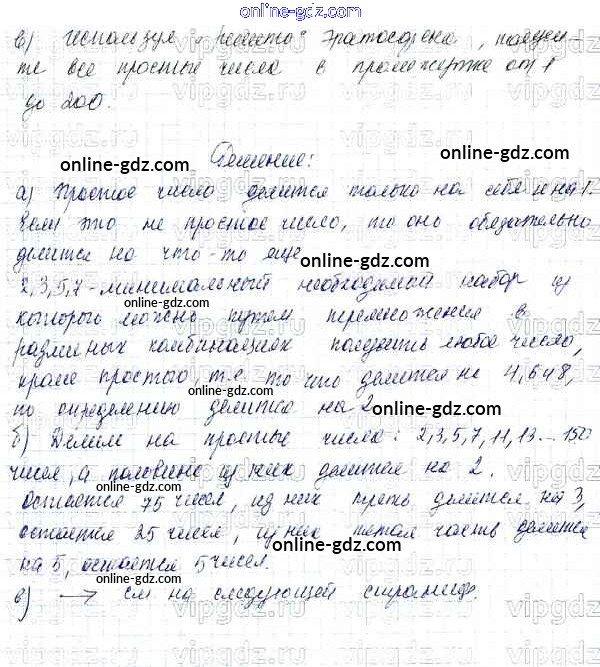 online-gdz.com
в) Используя „решето“ Эратосфена, найди-
те все простые числа в промежутке от 1
до 200.
Решение:
online-gdz.com online-gdz.com
а) Простое число делится только на себя и на 1.
Если это не простое число, то оно обязательно
делится на что-то еще
online-gdz.com
2,3,5,7-минимальный необходимый набор из
online-gdz.com
которого можно путем перемножения в
различных комбинациях получить любое число,
online-gdz.com online-gdz.com
кроме простого, т.е. то что делится на 4,6 и 8,
по определению делится на 2
online-gdz.com
б) Делим на простые числа: 2,3,5,7,11,13...150
чисел, а половина из них делится на 2.
online-gdz.com
Остается 75 чисел, из них треть делится на 3,
остается 25 чисел, из них пятая часть делится
online-gdz.com
на 5, остается 5 чисел.
online-gdz.com
в) → см на следующей странице.
online-gdz.com